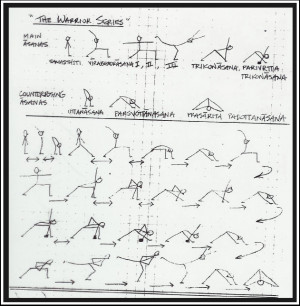 "THE WARRIOR SERIES"
MAIN
ĀSANAS
SAMASTHITI VĪRABHADRĀSANA I, II, III TRIKONĀSANA, PARIVRTTA
TRIKONĀSANA
COUNTERPOSING
ĀSANAS
UTTĀNĀSANA PĀRŚVOTTĀNĀSANA PRASĀRITA PĀDOTTĀNĀSANA